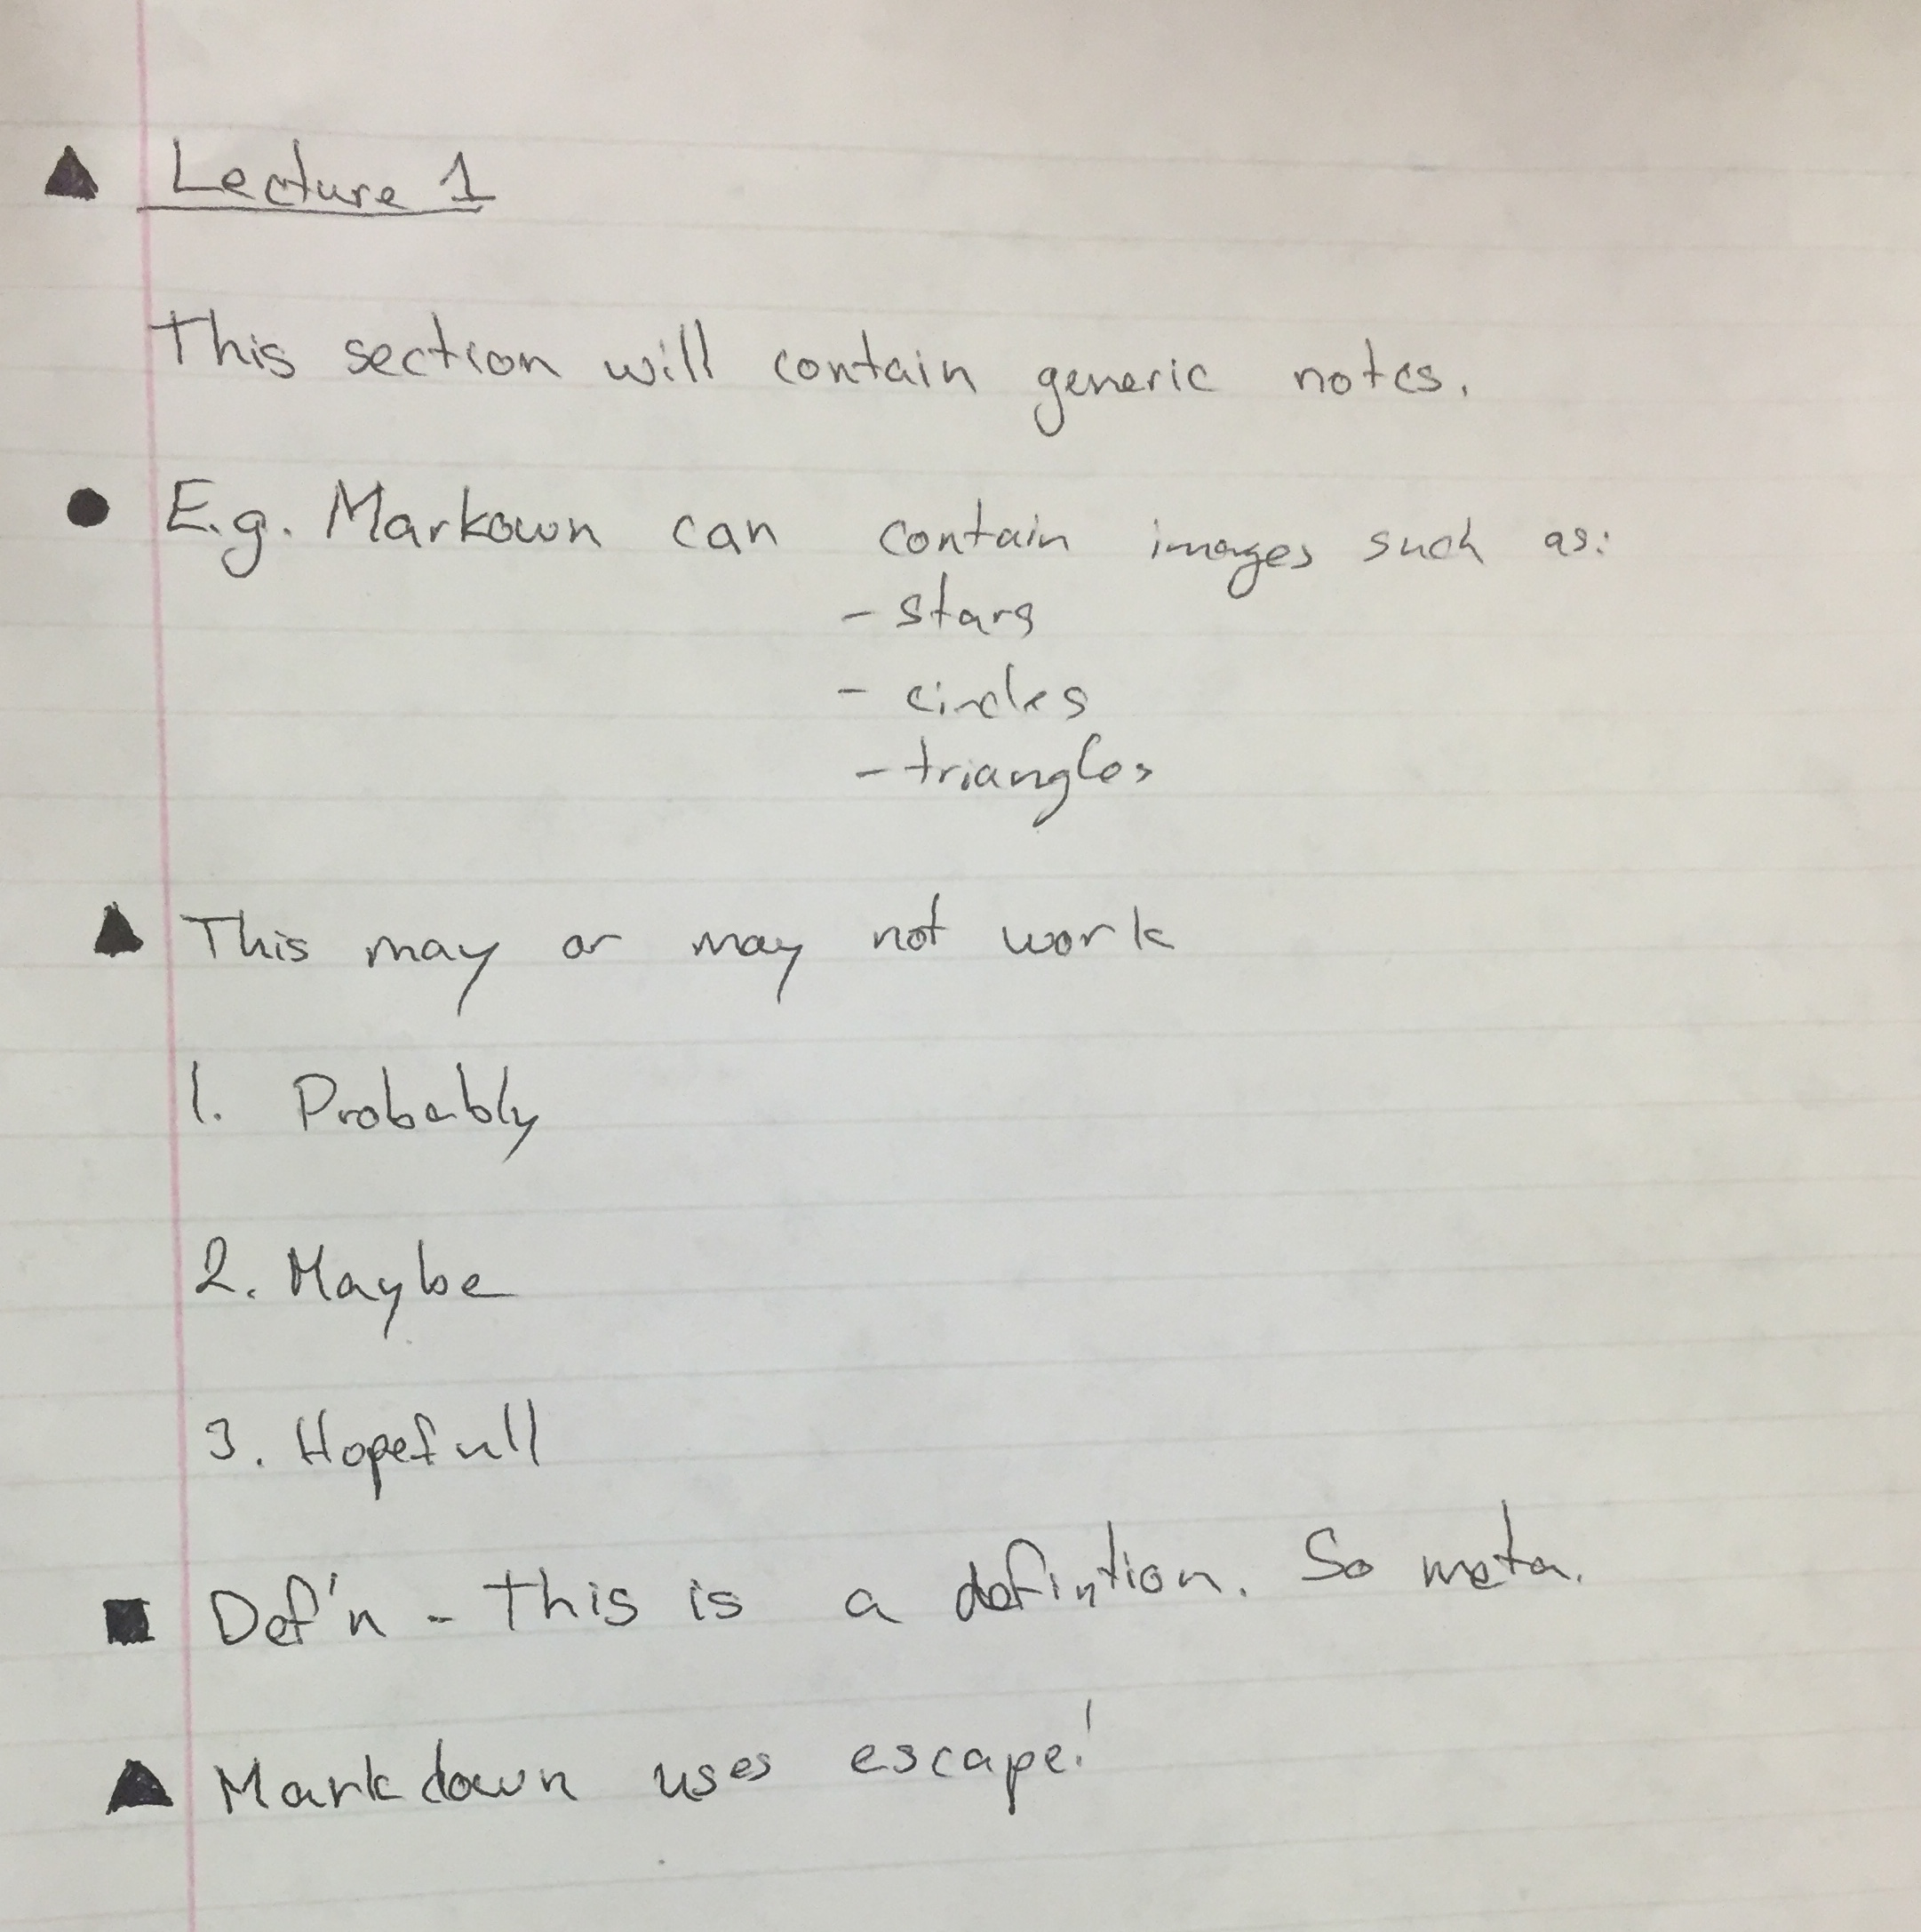 ▲ Lecture 1
This section will contain generic notes.
● E.g. Markown can contain images such as:
- stars
- circles
- triangles
▲ This may or may not work
1. Probably
2. Maybe
3. Hopefull
■ Def'n - This is a defintion. So meta.
▲ Markdown uses escape!